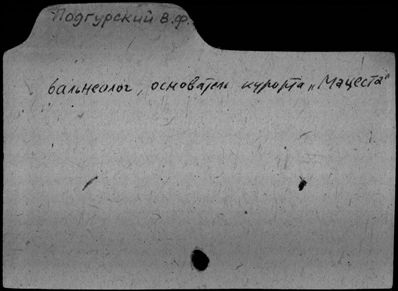 Подгурский В.Ф.
бальнеолог, основатель курорта „Мацеста"